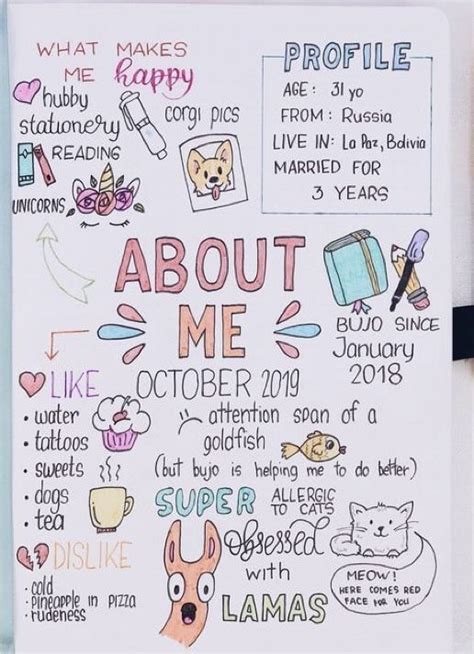 WHAT MAKES
ME happy
hubby
stationery
READING
UNICORNS
corgi pics
PROFILE
AGE: 31 yo
FROM: Russia
LIVE IN: La Paz, Bolivia
MARRIED FOR
3 YEARS
ABOUT
ME
BUJO SINCE
January
2018
OCTOBER 2019
LIKE
• water
• tattoos
• sweets
• dogs
• tea
DISLIKE
• cold
• pineapple in pizza
• rudeness
attention span of a
goldfish
(but bujo is helping me to do better)
SUPER ALLERGIC
TO CATS
Obsessed
with
LAMAS
MEOW!
HERE COMES RED
FACE FOR YOU